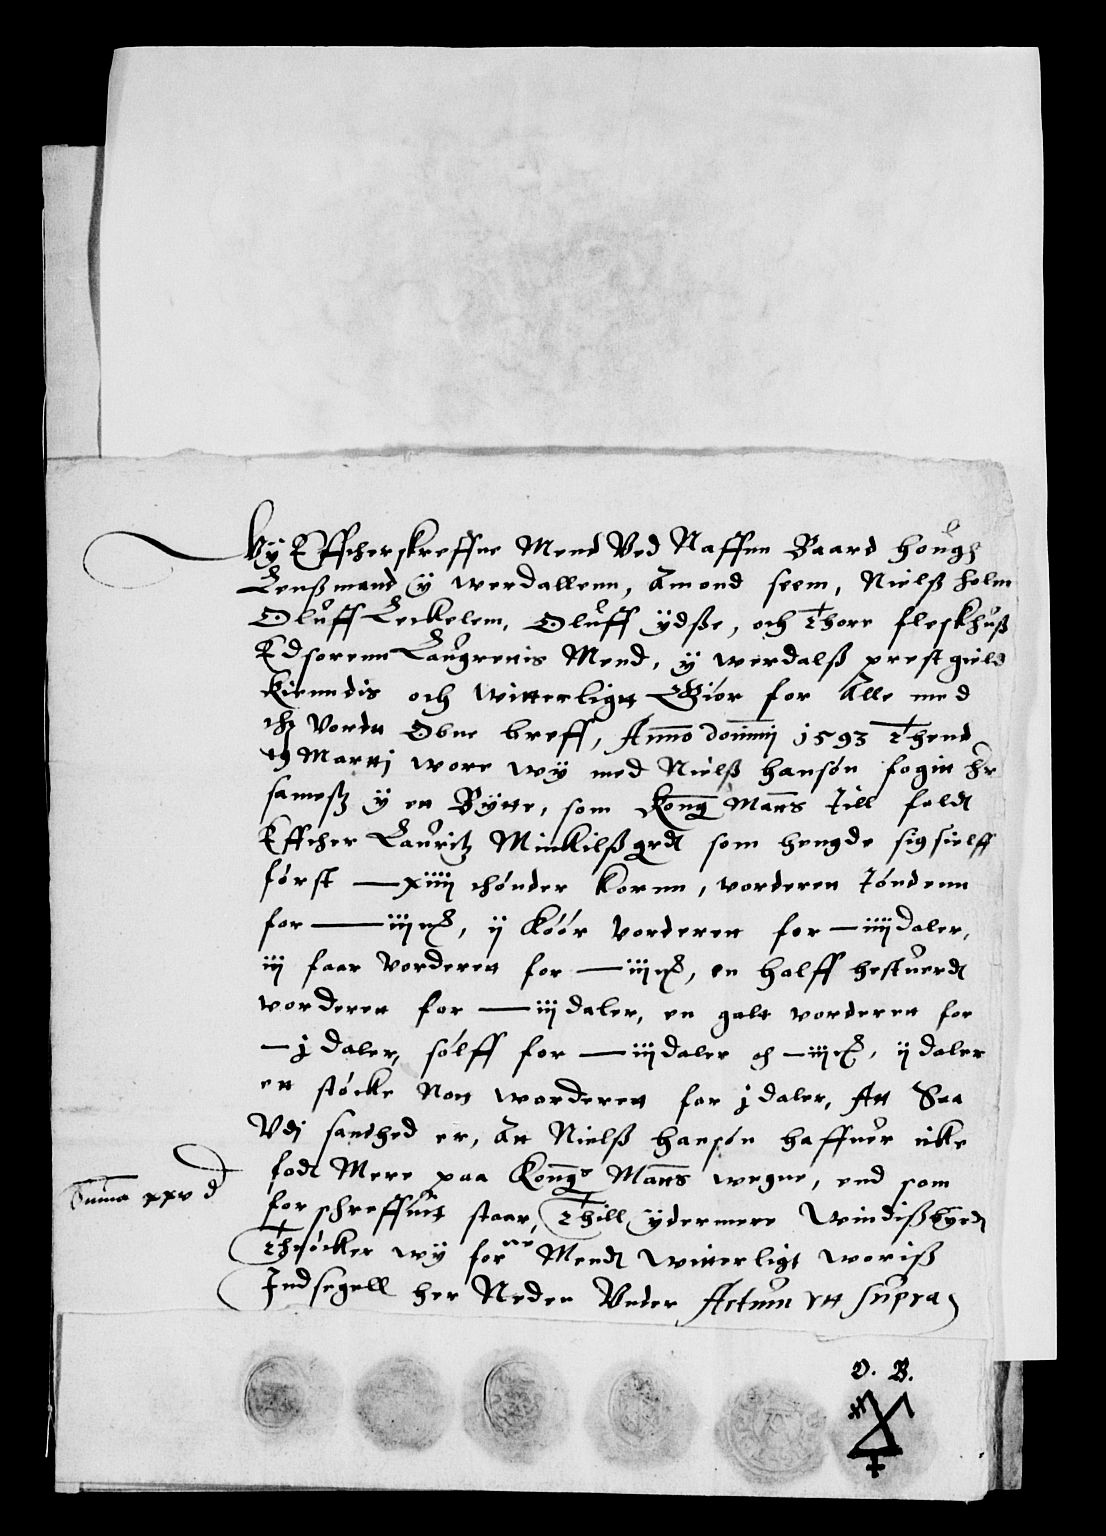 Vÿ Effcherskreffne Mend Ved Naffnn Baard hough
Lenßmand ÿ werdallenn, Amond seem, Nielß holm
Oluff Leckelem, Oluff ÿdße, och Thore fleskhuß
Edsorenn Laugrettis Mend, ÿ werdalß prest gield
Kienndis och witterligtt Giör for Alle med
Vortt Obne breff, Anno domini 1593 Thend
19 Martij wore wÿ med Nielß hansøn fogitt
samestz ÿ ett Bÿtte, som Kong Matts till faldt
Effcher Lauritz Minkilßgrdt som hengde sig sielff
først — xiiij thönder kornn, vorderett töndenn
for — iij mk, ij köör vorderett for — iiij daler,
iij faar vorderett for — iij mk, en halff hestuerdt
vorderett for — iij daler, en galt vorderett for
— j daler, sølff for — iij daler och — iij mk, ij daler
ett støcke Nott worderett for j daler, Att Saa
Vdj sandhed er, Att Nielß hansøn haffuer icke
fodt Mere paa Kongs Matts wegne, end som
forschreffuit staar, Thill ÿdermere windißbyrdt
Thrÿcker wÿ forne Mendt witterligt woriß
Indsegell her Neden Vnder Actum vtt supra
Summa xxv d
O. B.